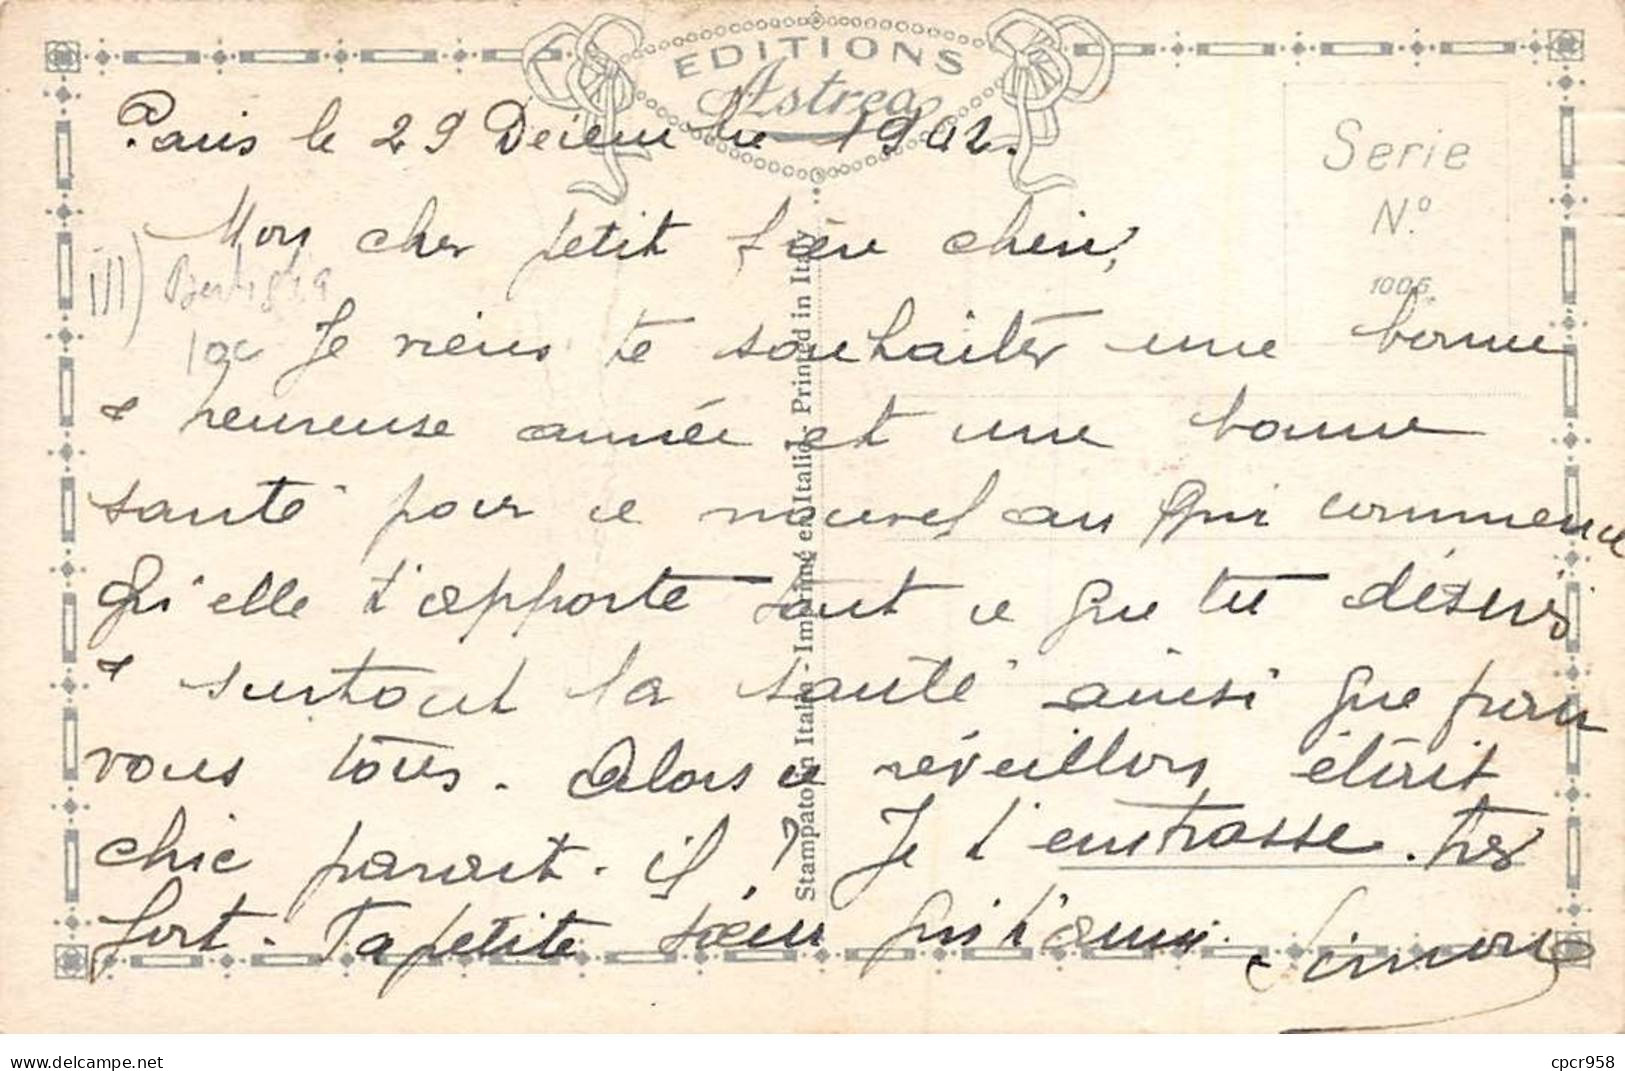 EDITIONS
Astrea
Serie
N.º
1006
Paris le 29 Décembre 1902.
Mon cher petit frère chéri,
Je viens te souhaiter une bonne
& heureuse année et une bonne
santé pour ce nouvel an qui commence
qu'elle t'apporte tout ce que tu désires
& surtout la santé ainsi que pour
vous tous. Alors ce réveillon était
chic parait-il ? Je t'embrasse très
fort. Ta petite soeur qui t'aime. Simone
Stampato in Italia - Imprimé en Italie - Printed in Italy
ill)
10c
delcampe.net
cpcr958